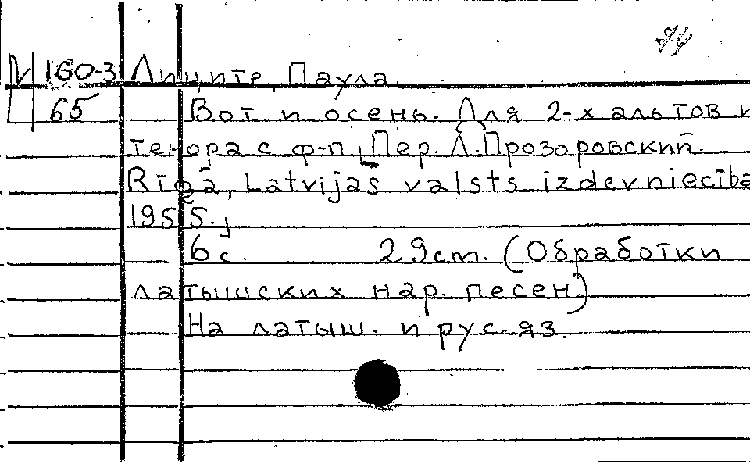 V 160-3 Лиците, Паула.
65 Вот и осень. Для 2-х альтов и
тенора с ф-п, Пер. Л. Прозоровский.
Rīgā, Latvijas valsts izdevniecība
1955.,
6с. 29cm. (Обработки
латышских нар. песен)
На латыш. и рус. яз.